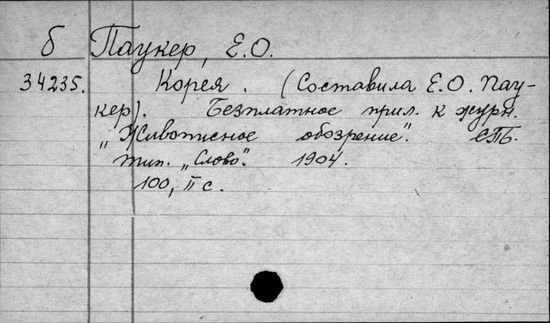 б Паукер, Е.О.
34235. Корея. (Составила Е.О. Пау-
кер). Безплатное прил. к журн.
„Живописное обозрение". СПБ.
тип. „Слово". 1904.
100, II с.